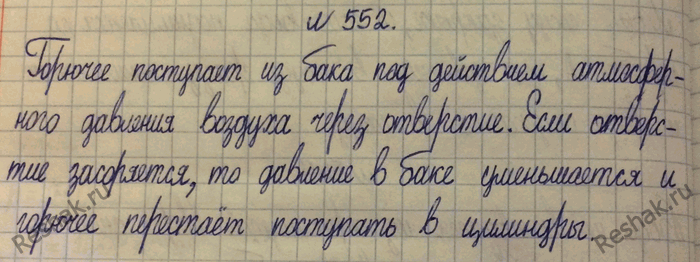 № 552.
Горючее поступает из бака под действием атмосфер-
ного давления воздуха через отверстие. Если отверс-
тие засоряется, то давление в баке уменьшается и
горючее перестаёт поступать в цилиндры.
Reshak.ru
Reshak.ru